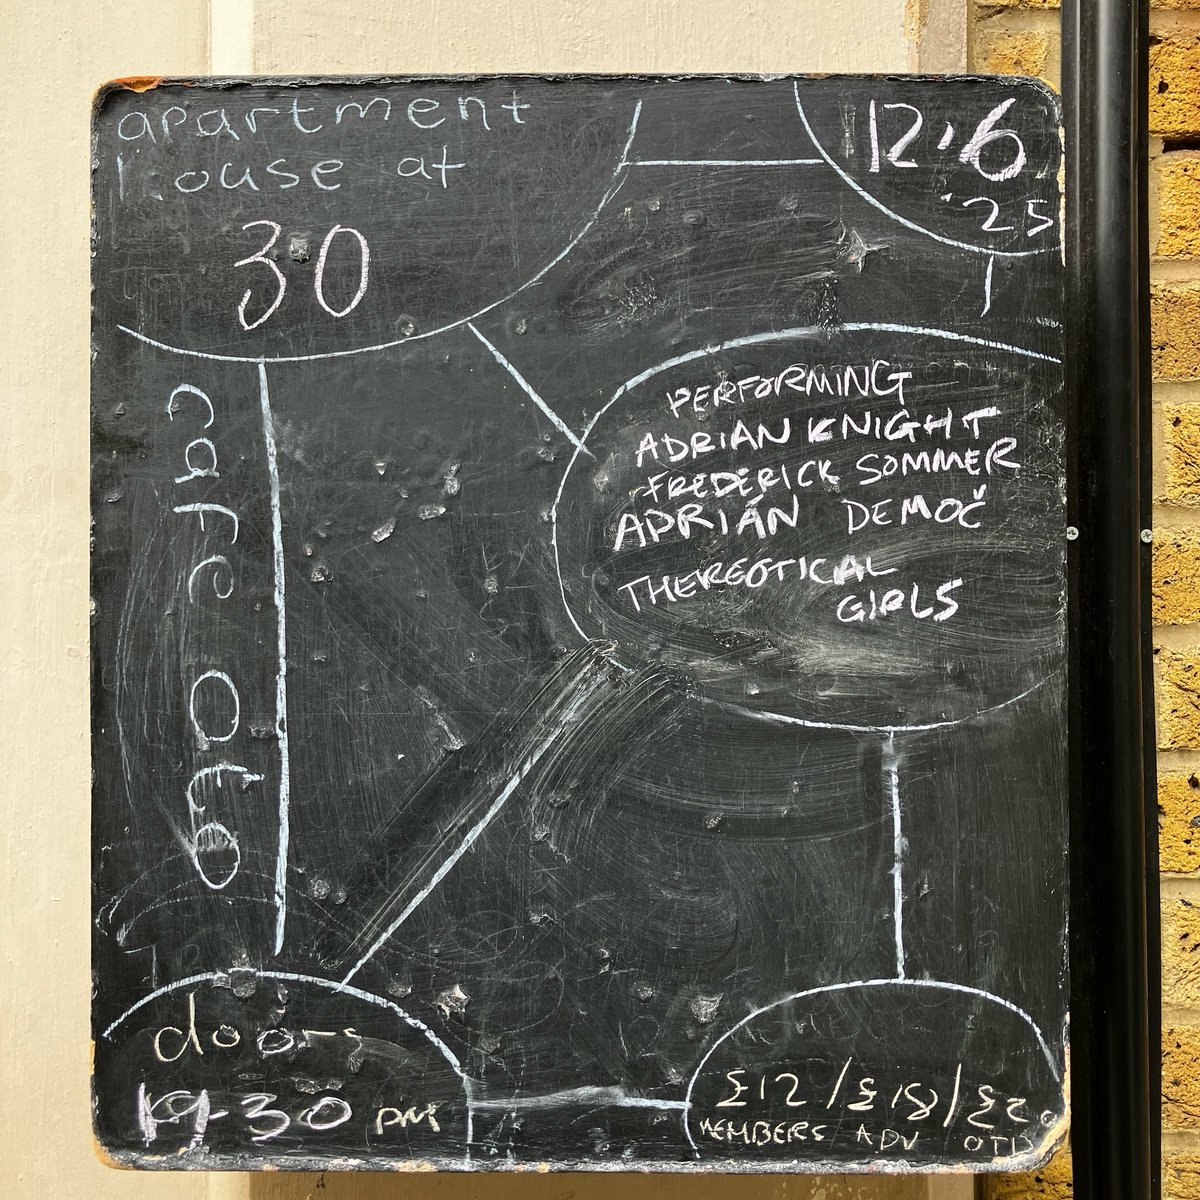 apartment
house at
30
12.6
'25
PERFORMING
ADRIAN KNIGHT
FREDERICK SOMMER
ADRIÁN DEMOČ
THEREOTICAL
GIRLS
cafe oto
doors
19-30 PM
£12 / £18 / £20
MEMBERS ADV OTD